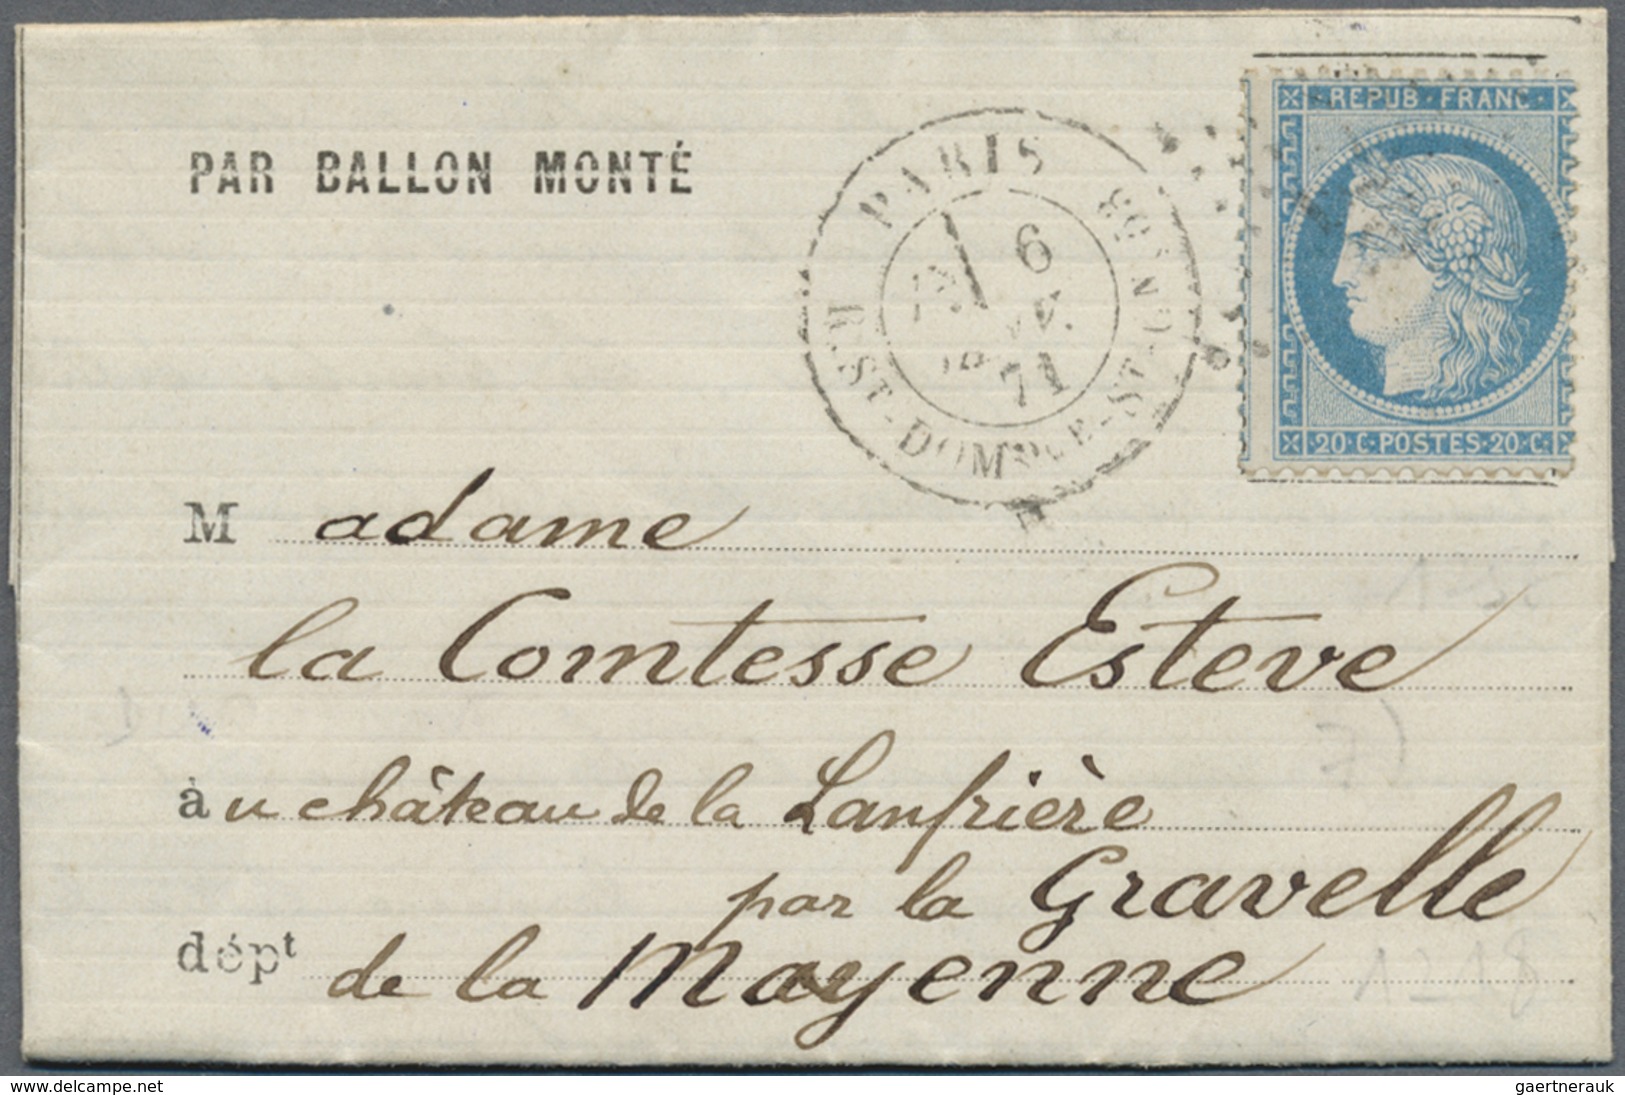 PAR BALLON MONTÉ
PARIS
6
71
REPUB·FRANC·
20·C·POSTES·20·C·
Madame
la Comtesse Esteve
au château de la Lanfrière
par la Gravelle
dépt de la Mayenne
delcampe.net
gaertnerauk